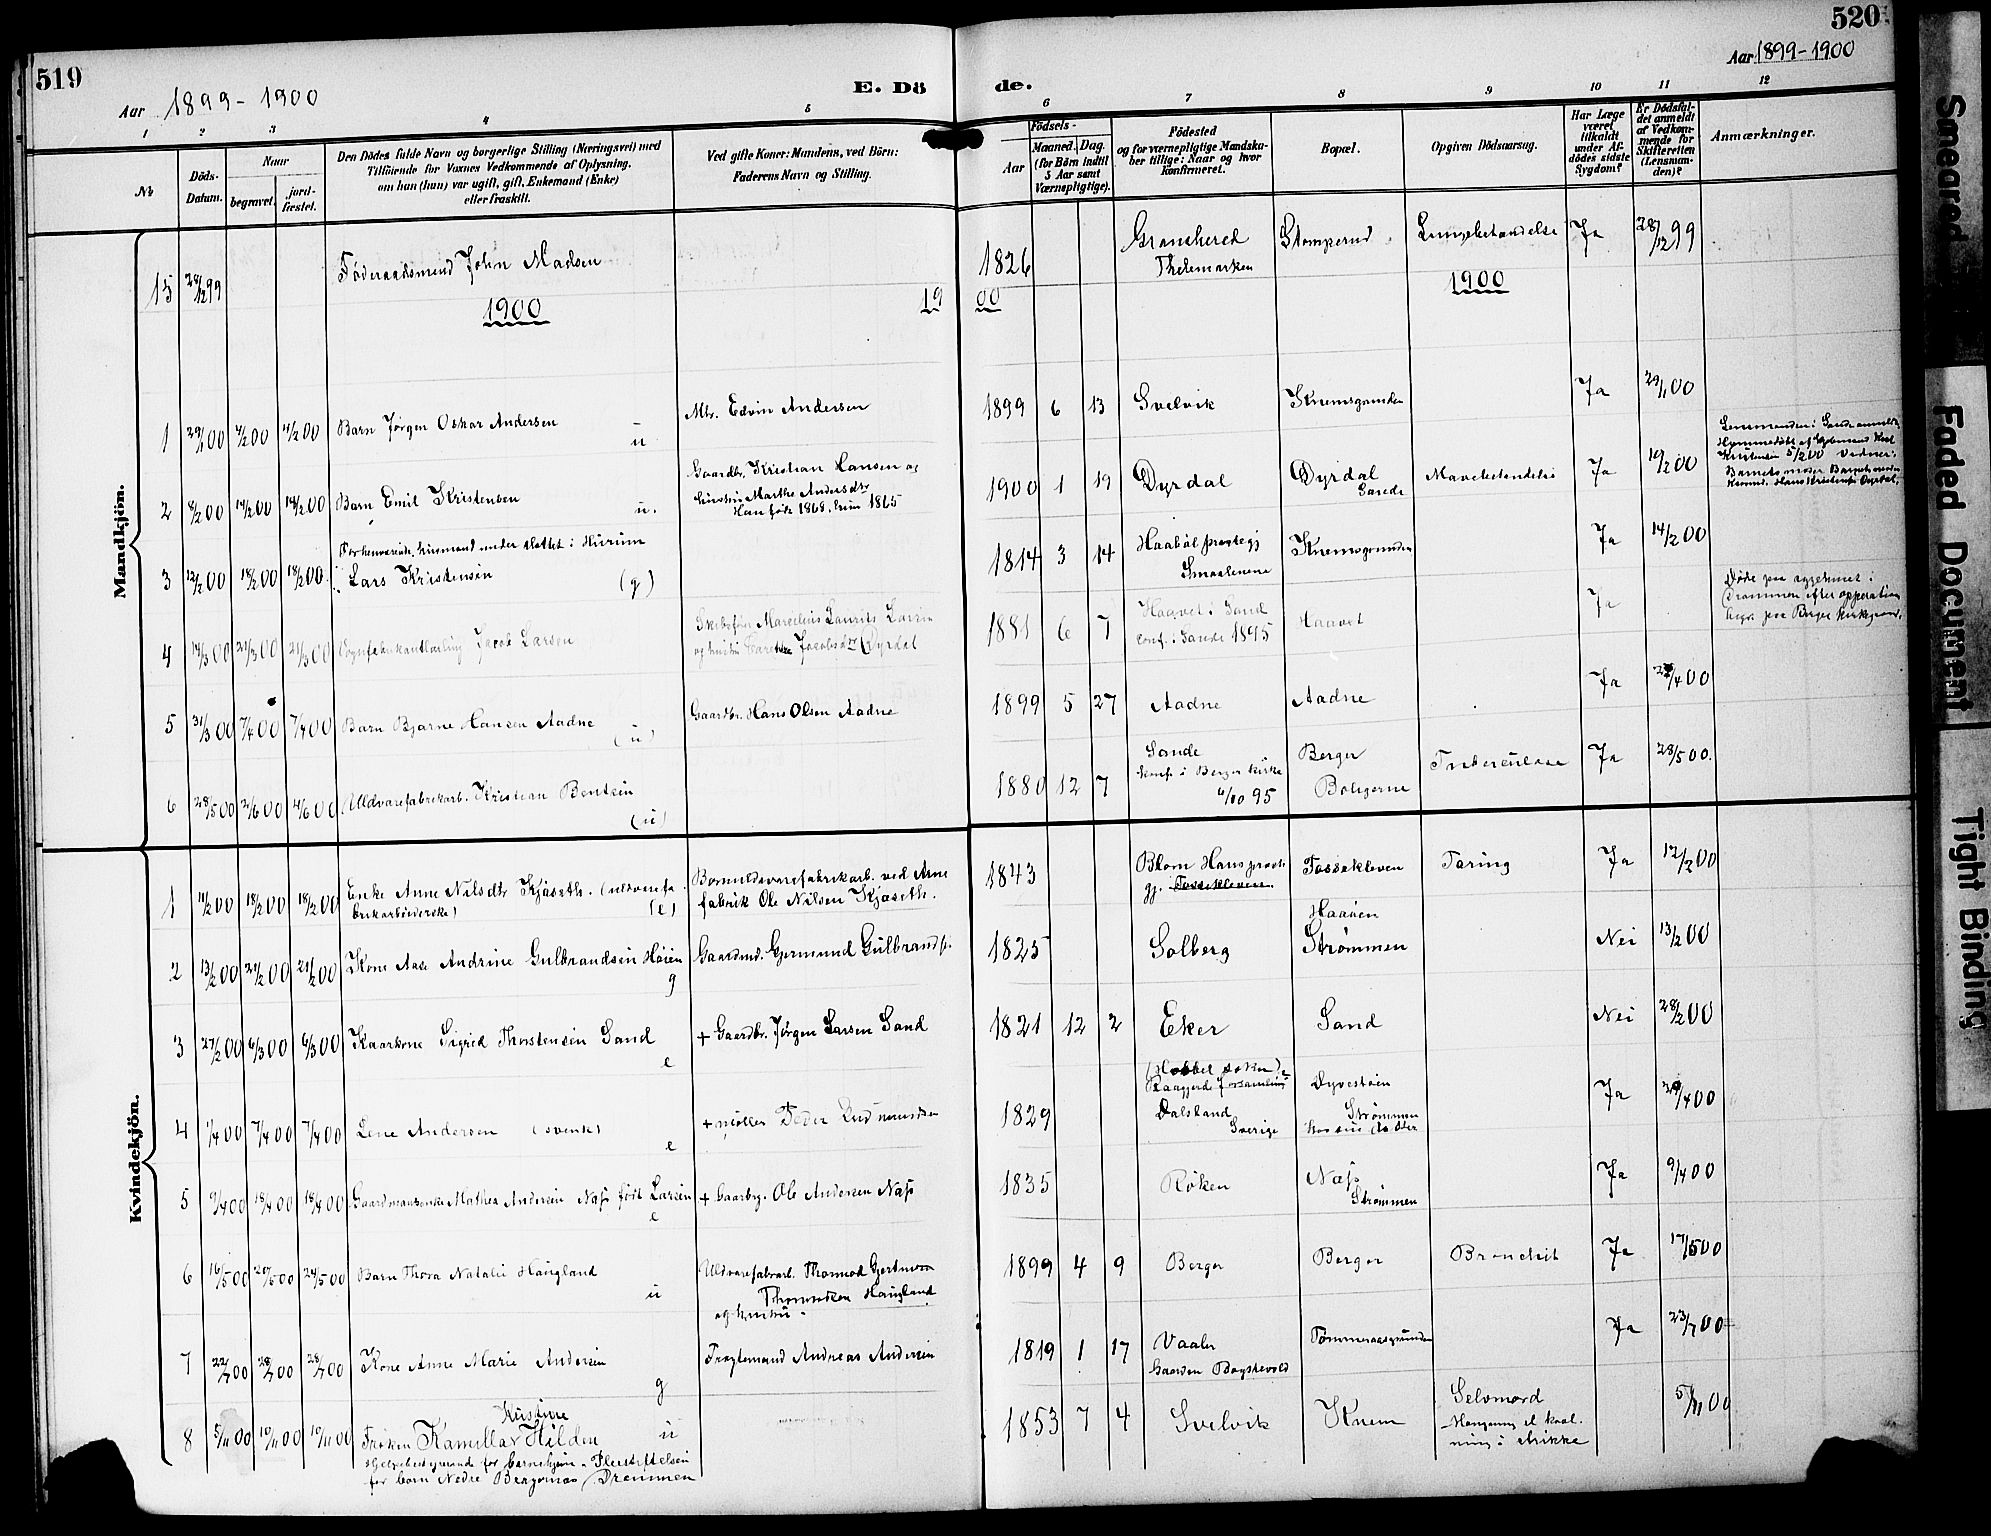 519
Aar 1899-1900
E. Dö
de.
520
Aar 1899-1900
1 2 3 4 5 6 7 8 9 10 11 12
No
Döds-
Datum.
Naar
begravet.
jord-
fæstet.
Den Dödes fulde Navn og borgerlige Stilling (Næringsvei) med
Tilföiende for Voxnes Vedkommende af Oplysning.
om han (hun) var ugift, gift, Enkemand (Enke)
eller fraskilt.
Ved gifte Koner: Mandens, ved Börn:
Faderens Navn og Stilling.
Födsels-
Aar
Maaned. Dag.
(for Börn indtil
5 Aar samt
Værnepligtige).
Födested
og for værnepligtige Mandska-
ber tillige: Naar og hvor
konfirmeret.
Bopæl.
Opgiven Dödsaarsag.
Har Læge
været
tilkaldt
under Af-
dödes sidste
Sygdom?
Er Dödsfal-
det anmeldt
af Vedkom-
mende for
Skifteretten
(Lensman-
den)?
Anmærkninger.
Mandkjön.
15 28/12 99 Föderaadsmand John Madsen 1826 Gransherad Stomperud Lungebetændelse Ja 28/12 99
Thelemarken
1900 19 00 1900
1 29/1 00 4/2 00 4/2 00 Barn Jørgen Oskar Andersen u Mtr. Edvin Andersen 1899 6 13 Svelvik Knemsgrunden Ja 29/1 00
2 8/2 00 14/2 00 14/2 00 Barn Emil Kristensen u. Gaardbr. Kristian Hansen og
hustru Marthe Andersdtr
Han født 1868, hun 1865
1900 1 19 Dyrdal Dyrdal Sande Mavebetændelse Ja 10/2 00
Lensmanden i Sande anmeldt
5/2 00
Barnets moder
Hans Kristensen Dyrdal.
3 12/2 00 18/2 00 18/2 00 Forhenværende husmand under slottet i Hurum
Lars Kristensen (g) 1814 3 14 Haabøl prestegj Smaalenene Knemsgrunden Ja 14/2 00
4 14/3 00 21/3 00 21/3 00 Jacob Larsen Skibsfør. Marcelius Laurits Larsen
og hustru Jacobsdtr (Dyrdal
1881 6 7 Haavet i Sand
conf. i Sande 1895 Haavet Ja
Døde paa sygehuset i
Drammen efter opperation
begr. paa Berger kirkegaard.
5 31/3 00 7/4 00 7/4 00 Barn Bjarne Hansen Aadne (u) Gaardbr. Hans Olsen Aadne 1899 5 27 Aadne Aadne Ja 2/4 00
6 28/5 00 2/6 00 4/6 00 Uldvarefabrikarb. Kristian Bentsen (u) 1880 12 7 Sande
konf. i Berger kirke
95 Berger
Boligerne Tuberculose Ja 28/5 00.
Kvindekjön.
1 11/2 00 18/2 00 18/2 00 Enke Anne Nilsdtr Kjøseth. (uldvarefa
brikarbeiderske) (e) Bomuldsvarefabrikarb. ved Arne
fabrik Ole Nilsen Kjøseth.
1843 Blom Hans prest
gj. Fossekleven Fossekleven Tæring Ja 12/2 00
2 13/2 00 21/2 00 21/2 00 Kone Aase Andrine Gulbrandsen Høien g Gaardmd. Gjermund Gulbrands. 1825 Solberg Haaøen
Strømmen Nei 13/2 00
3 27/2 00 6/3 00 6/3 00 Kaarkone Sigrid Thorstensen Sand e + Gaardbr. Jørgen Larsen Sand 1821 12 2 Eker Sand Nei 28/2 00
4 1/4 00 7/4 00 7/4 00 Lene Andersen (svensk) e + møller Peder 1829
Dalsland
Sverige Dyvestøen
Strømmen
hos sin datter Ja 2/4 00
5 9/4 00 18/4 00 18/4 00 Gaardmansenke Mathea Andersen Næss født Larsen e + Gaardbrg. Ole Andersen Næss 1835 Røken Næss
Strømmen Ja 9/4 00
6 16/5 00 24/5 00 24/5 00 Barn Thora Natalie Haugland u Uldvarefabrarb. Thormod Gjertmon
Thormodsen Haugland
og hustru 1899 4 9 Berger Berger Bronchit Ja 17/5 00
7 22/7 00 28/7 00 28/7 00 Kone Anne Marie Andersen g Fragtemand Andreas Andersen 1819 1 17 Vaaler
Gaarden Bogshevold Tømmeraasgrunden Ja 23/7 00
8 5/11 00 10/11 00 10/11 00 Frøken Kamilla Kristine Hilden u
Hjelpebestyrerinde for barnehjem - Pleiestiftelsen
for børn Nedre Bragernes, Drammen
1853 7 4 Svelvik Knem Selvmord
Hængning et kval-
ning i strikke 5/11 00
Smeared
Faded Document
Tight Binding